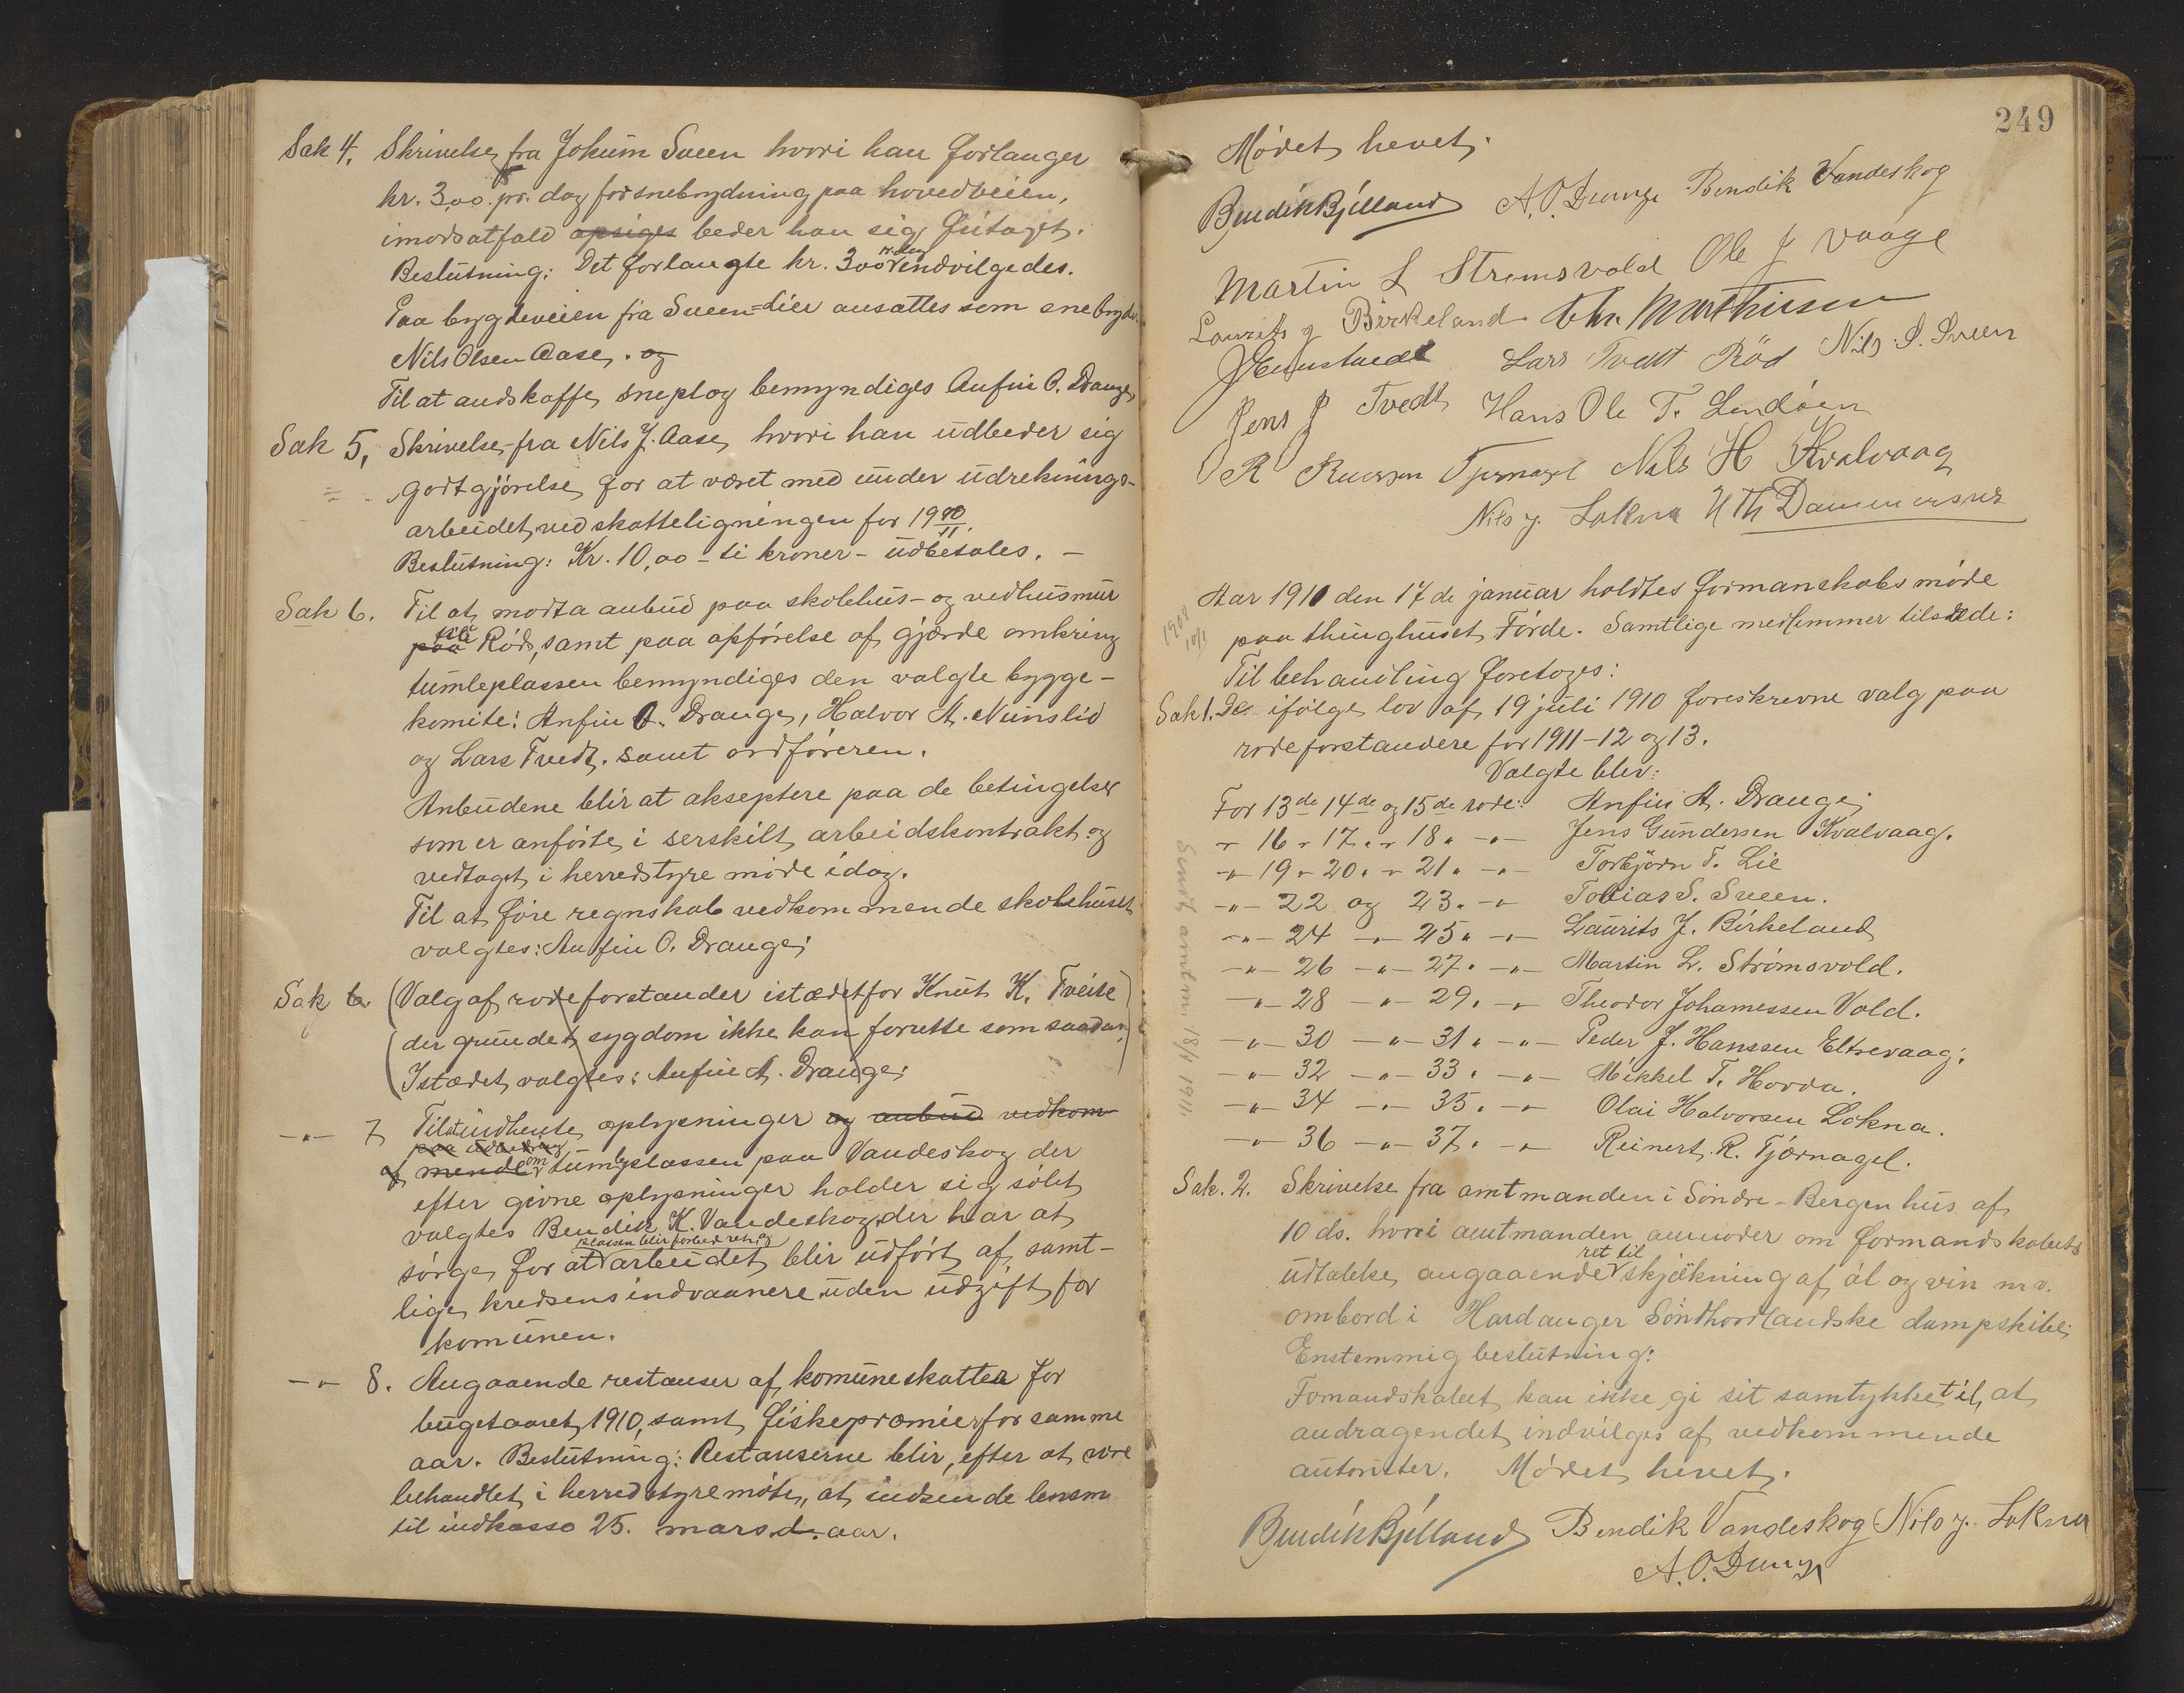 Sak 4. Skrivelse fra Jokum Sveen hvori han forlanger
kr. 3,00 pr. dag for snebrydning paa hovedveien,
imodsatfald opsiges beder han sig fritaget.
Beslutning: Det forlangte kr. 3,00 pr. dag indvilgedes.
Paa bygdeveien fra Sveen-Lier ansattes som snebryder
Nils Olsen Aase. og
Til at andskaffe sneplog bemyndiges Anfin O. Drange
Sak 5, Skrivelse fra Nils J. Aase, hvori han udbeder sig
godtgjørelse for at været med under udreknings-
arbeidet ved skatteligningen for 1910/11.
Beslutning: Kr. 10,00 - ti kroner - udbetales. -
Sak 6. Til at modta anbud paa skolehus- og vedhusmur
paa till Røds, samt paa opførelse af gjærde omkring
tumleplassen bemyndiges den valgte bygge-
komite: Anfin O. Drange, Halvor A. Neunslid
og Lars Tvedt. samt ordføreren.
Anbudene blir at akseptere paa de betingelser
som er anførte i serskilt arbeidskontrakt og
vedtaget i herredstyre møde idag.
Til at føre regnskab vedkommende skolehuset
valgtes: Anfin O. Drange;
Sak 6. (Valg af rodeforstander istædet for Knut K. Tveite
(der grundet sygdom ikke kan forrette som saadan.)
(Istædet valgtes: Anfin A. Drange;
-"- 7 Til at indhente oplysninger og anbud vedkom-
paa udbedring
af mende om tumleplassen paa Vandeskog der
efter givne oplysninger holder sig sølet
valgtes Bendik K. Vandeskog, der har at
plassen blir forbedret, og
sørge for at arbeidet blir udført af samt-
lige kredsens indvaanere uden udgift for
komunen.
-"- 8. Angaaende restanser af komuneskatten for
bugetaaret 1910, samt fiskepræmier for samme
aar. Beslutning: Restanserne blir, efter at være
behandlet i herredstyremøte, at indsende lensm
til indkasso 25. mars d. aar.
249
Mødet hevet;
Bendik Bjelland A. O. Drange Bendik Vandeskog
Martin L Strømsvold Ole J Vaage
Laurits J Birkeland Chr. Mathisen
Lars Tvedt Röd Nils S. Sveen
Jens J Tvedt Hans Ole T. Lindøen
R Tjernagel Nils H Kvalvaag
Nils J. Lokna H Th Dammersnes
Aar 1911 den 17de januar holdtes formanskabsmøde
paa thinghuset Førde. Samtlige medlemmer tilstede:
Til behandling foretoges:
Sak 1. De ifølge lov af 19 juli 1910 foreskrevne valg paa
rodeforstandere for 1911-12 og 13.
Valgte blev:
For 13de 14de og 15de rode: Anfin A. Drange;
" 16 " 17. " 18. -"- Jens Gundersen Kvalvaag.
-"- 19 " 20. " 21. -"- Torbjørn T. Lie
-"- 22 og 23. -"- Tobias S. Sveen.
-"- 24 -"- 25. -"- Laurits J. Birkeland
-"- 26 -"- 27. -"- Martin L. Strømsvold.
-"- 28 -"- 29. -"- Theodor Johannessen Vold.
-"- 30 -"- 31. -"- Peder J. Hanssen Eltrevaag;
-"- 32 -"- 33. -"- Mikkel T. Hovda.
-"- 34 -"- 35. -"- Olai Halvorsen Lokna.
-"- 36 -"- 37. -"- Reinert R. Tjærnagel.
Sendt amtm 18/1 1911
Sak. 2. Skrivelse fra amtmanden i Søndre-Bergenhus af
10 ds. hvori amtmanden anmoder om formandskabets
udtalelse angaaende ret til skjækning af øl og vin m.v.
ombord i Hardanger Søndhordlandske dampskibe;
Enstemmig beslutning:
Fomandskabet kan ikke gi sit samtykke til, at
andragendet indvilges af vedkommende
autoriteter. Mødet hevet.
Bendik Bjelland Bendik Vandeskog Nils J. Lokna
A. O. Drange